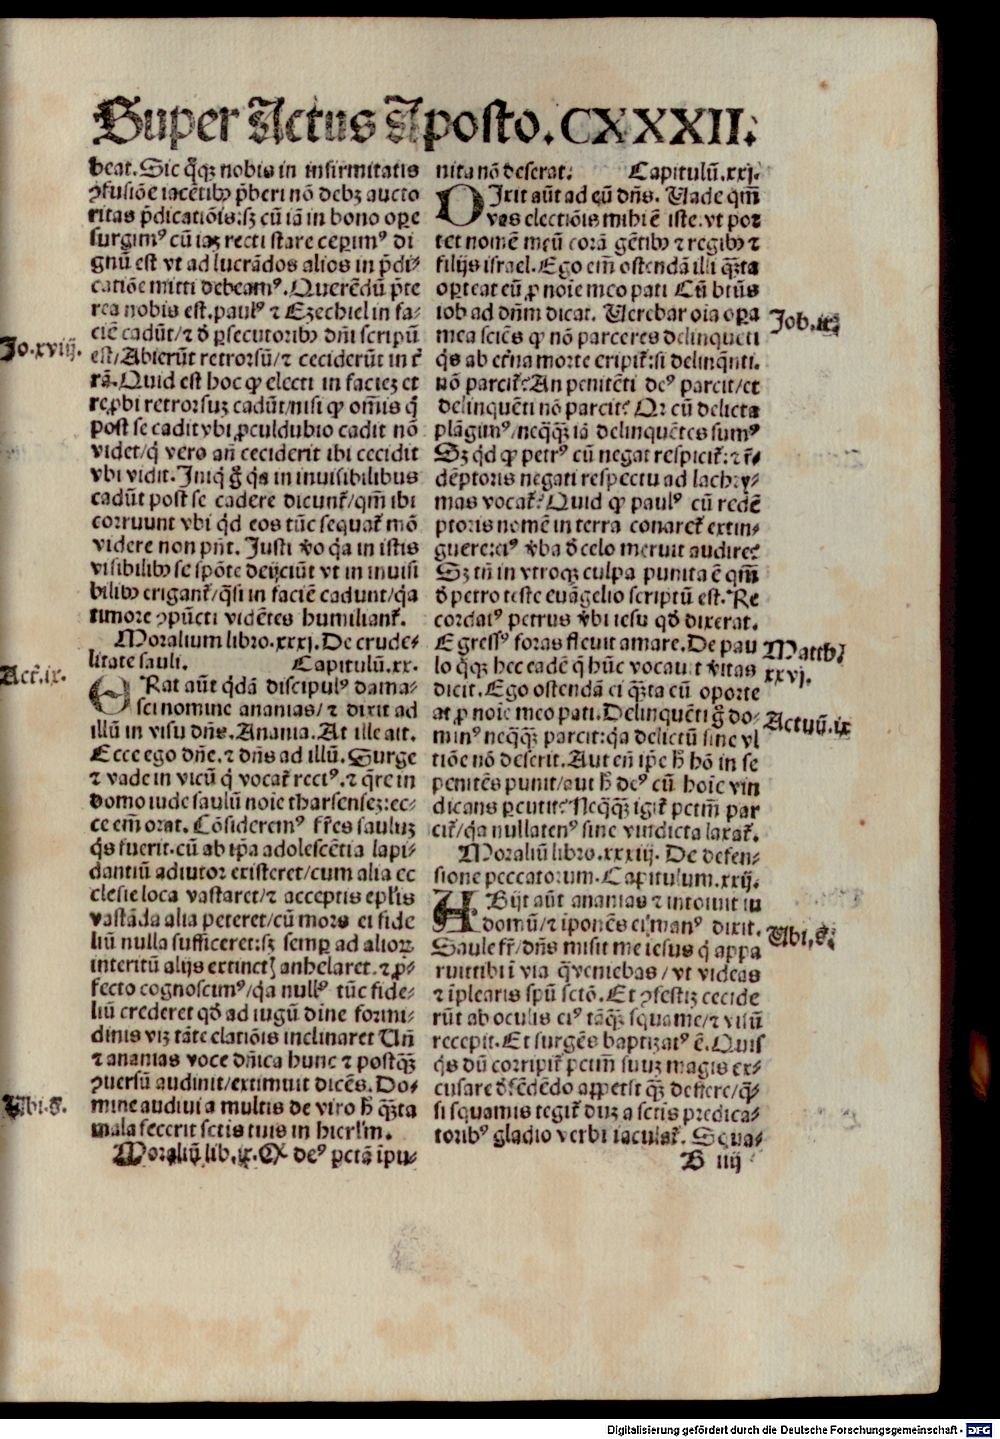 Super Actus Aposto. CXXXII.
beat. Sic q̃qꝫ nobis in infirmitatis
ↄfusiõe iacẽtibꝰ p̃beri nõ debꝫ aucto
ritas p̃dicatiõis: sꝫ cũ iã in bono oꝑe
surgimꝰ cũ iaꝫ recti stare ceꝑimꝰ di
gnũ est vt ad lucrãdos alios in p̃di⸗
catiõe mitti debeamꝰ. Querẽdũ p̃te
rea nobis est. paulꝰ ⁊ Ezechiel in fa⸗
ciẽ cadũt/ ⁊ đ ꝑsecutoribꝰ dñi scriptũ
est/ Abierũt retrorsũ/ ⁊ ceciderũt in t̃
rã. Quid est hoc ꝙ electi in facieꝫ et
reꝓbi retrorsuꝫ cadũt/ nisi ꝙ om̃is q̇
post se cadit vbi ꝓculdubio cadit nõ
videt/ q̇ vero añ ceciderit ibi cecidit
vbi vidit. Iniq̇ g̃ q̇s in inuisibilibus
cadũt post se cadere dicunt̃/ qm̃ ibi
corruunt vbi q̇d eos tũc sequat̃ mõ
videre non pñt. Justi v̾o q̇a in istis
visibilibꝰ se spõte deijciũt vt in inuisi
bilibꝰ erigant̃/ q̃si in faciẽ cadunt/ q̇a
timore ↄpũcti vidẽtes humiliant̃.
Moralium libro. xxxj. De crude⸗
litate sauli. Capitulũ. xx.
ERat aũt q̇dã discipulꝰ dama⸗
sci nomine ananias/ ⁊ dixit ad
illũ in visu dñs. Anania. At ille ait.
Ecce ego dñe. ⁊ dñs ad illũ. Surge
⁊ vade in vicũ q̇ vocat̃ rectꝰ. ⁊ q̃re in
domo iude saulũ noĩe tharsenseꝫ: ec⸗
ce em̃ orat. Cõsideremꝰ fr̃es sauluꝫ
q̇s fuerit. cũ ab ip̃a adolescẽtia lapi⸗
dantiũ adiutor existeret/ cum alia ec
clesie loca vastaret/ ⁊ acceptis epl̃is
vastãda alia peteret/ cũ mors ei fide
liũ nulla sufficeret: sꝫ semꝑ ad alioꝝ
interitũ alijs extinctꝭ anhelaret. ⁊ ꝓ⸗
fecto cognoscimꝰ/ q̇a nullꝰ tũc fide⸗
liũ crederet qđ ad iugũ diue formi⸗
dinis viꝫ tãte elatiõis inclinaret Uñ
⁊ ananias voce dñica hunc ⁊ postq̃ꝫ
ↄuersũ audiuit/ extimuit dicẽs. Do⸗
mine audiui a multis de viro h̃ q̃ta
mala fecerit sctis tuis in hierl̃m.
Moraliũ lib. ix. EX deꝰ ꝑctã ĩpu⸗
nita nõ deserat. Capitulũ. xxj.
DIxit aũt ad eũ dñs. Uade qm̃
vas electiõis mihi ẽ iste. vt por
tet nomẽ meũ corã gẽtibꝰ ⁊ regibꝰ ⁊
filijs israel. Ego em̃ ostendã illi q̃ꝫta
oꝑteat eũ ꝓ noĩe meo pati Cũ btũs
iob ad dñm dicat. Uerebar oĩa oꝑa
mea sciẽs ꝙ nõ parceres delinquẽti
q̇s ab et̾na morte eripit̃: si delinq̃nti.
nõ parcit̃? An penitẽti deꝰ parcit/ et
delinquẽti nõ parcit? Qꝛ cũ delicta
plãgimꝰ/ neq̃q̃ꝫ iã delinquẽtes sumꝰ
Sꝫ q̇d ꝙ petrꝰ cũ negat respicit̃: ⁊ r̃⸗
dẽptoris negati respectu ad lachry⸗
mas vocat̃? Quid ꝙ paulꝰ cũ redẽ
ptoris nomẽ in terra conaret̃ extin⸗
guere: eiꝰ v̾ba đ celo meruit audire?
Sꝫ tñ in vtroqꝫ culpa punita ẽ qm̃
đ petro teste euãgelio scriptũ est. Re
cordatꝰ petrus v̾bi iesu qđ dixerat.
Egressꝰ foras fleuit amare. De pau
lo q̃qꝫ hec eadẽ q̃ hũc vocauit v̾itas
dicit. Ego ostendã ei q̃ꝫta eũ oporte
at ꝓ noĩe meo pati. Delinquẽti g̃ do⸗
minꝰ neq̃q̃ꝫ parcit: q̇a delictũ sine vl
tiõe nõ deserit. Aut em̃ ip̃e h̃ hõ in se
penitẽs punit/ aut h̃ deꝰ cũ hoĩe vin
dicans ꝑcutit? Neq̃q̃ꝫ igit̃ pctm̃ par
cit̃/ q̇a nullatenꝰ sine vindicta laxat̃.
Moraliũ libro. xxxiij. De defen⸗
sione peccatorum. Capitulum. xxij.
ABijt aũt ananias ⁊ introiuit in
domũ/ ⁊ iponẽs ei manꝰ dixit.
Saule fr̃/ dñs misit me iesus q̇ appa
ruit tibi ĩ via q̃ veniebas/ vt videas
⁊ ĩplearis spũ sctõ. Et ↄfestiꝫ cecide
rũt ab oculis eiꝰ tãq̃ꝫ squame/ ⁊ visũ
recepit. Et surgẽs baptizatꝰ ẽ. Quis
q̇s dũ corripit̃ pctm̃ suuꝫ magis ex⸗
cusare đfẽdẽdo appetit q̃ꝫ deflere/ q̃⸗
si squamis tegit̃ duꝫ a sctis predica⸗
toribꝰ gladio verbi iaculat̃. Squa⸗
B iiij
Jo. xviij.
Act̃. ix.
Ubi. s̃.
Job. ix.
Matth.
xxvj.
Actuũ. ix
Ubi. s̃.
Digitalisierung gefördert durch die Deutsche Forschungsgemeinschaft - DFG